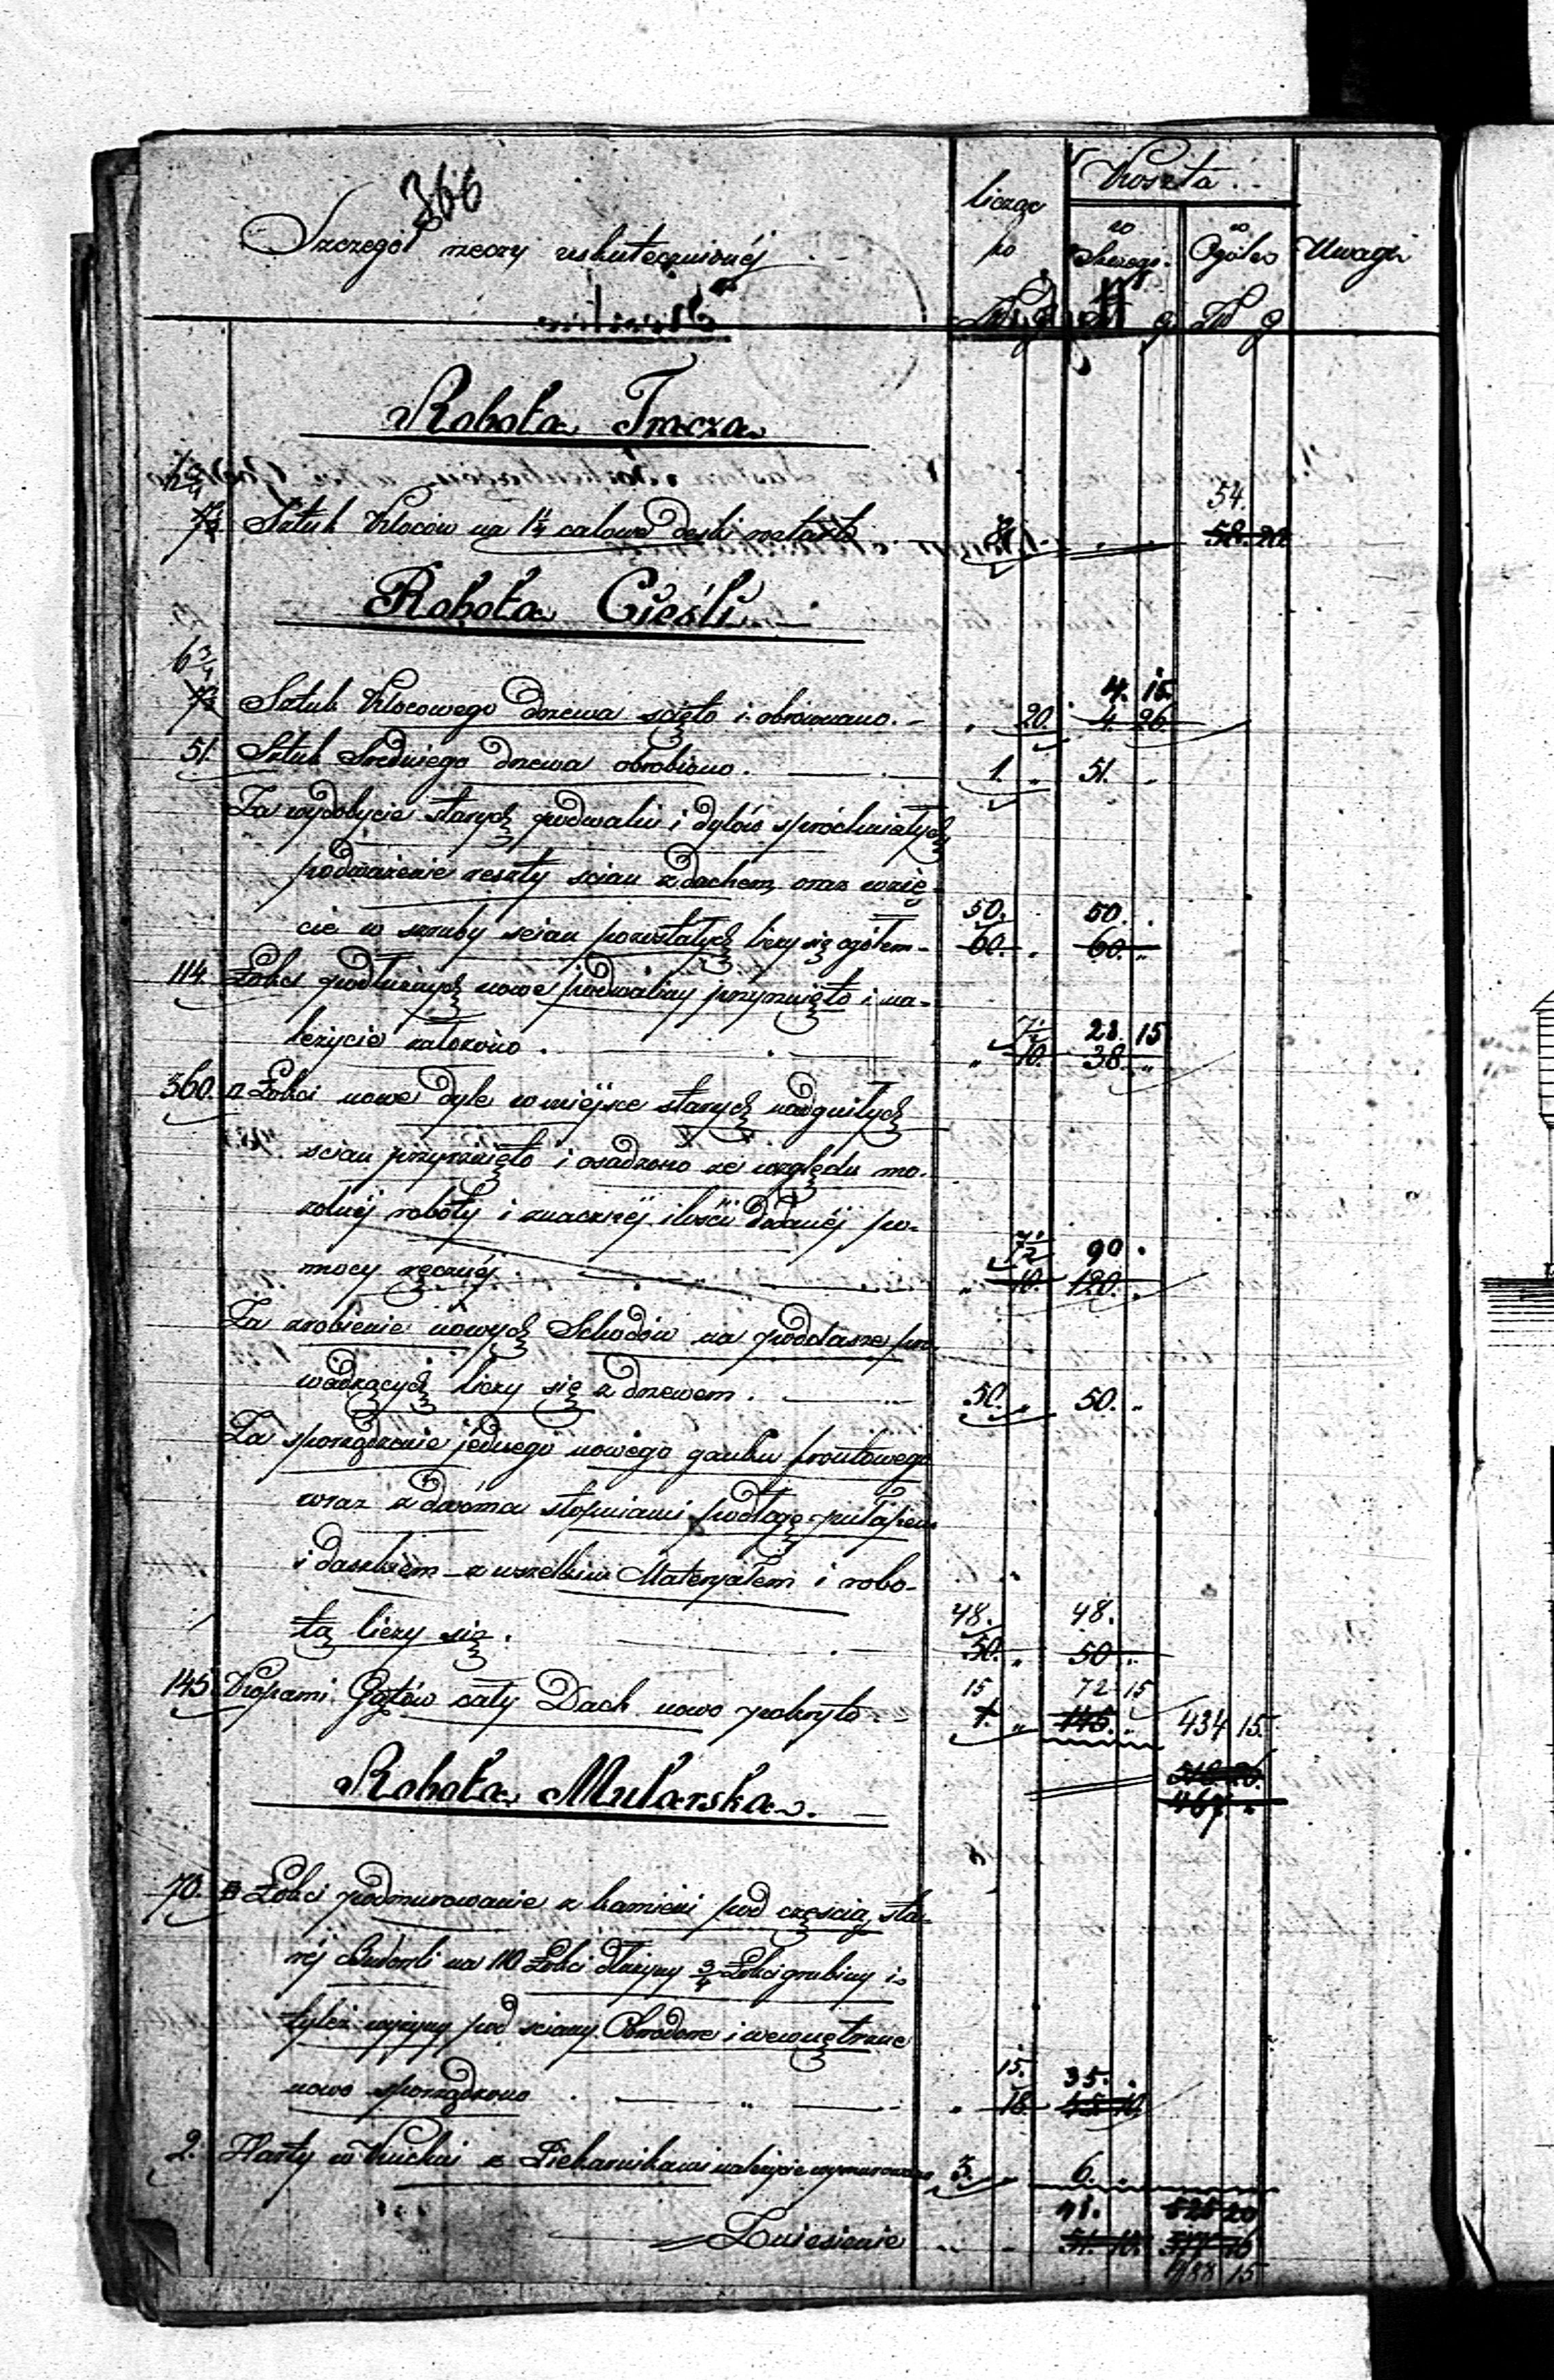 366
Szczegół rzeczy uskutecznionéj
licząc po
Koszta
w Szczegó.
w Ogóle
Uwagi
Zł g Zł g
Robota Tracza
6 3/4
54.
Sztuk Kloców na 1 1/4 calowe deski roztarto 8. 58. 20
Robota Cieśli
6 3/4
4. 15.
Sztuk Klocowego drzewa ścięto i obrównano. „ 20. 4. 26.
51. Sztuk Średniego drzewa obrobiono. 1. „ 51. „
Za wydobycie starych podwalin i dylów spróchniałych
podważenie reszty ścian z dachem, oraz wzię-
50. 50. .
cie w szruby ścian pozostałych liczy się ogółem 60. . 60. „
114. Łokci podłużnych nowe podwaliny przyrznięto i na-
7 1/2 28. 15
leżycie założono. „ 10. 38. „
360. □ Łokci nowe dyle w miejsce starych nadgniłych
ścian przyrznięto i osadzono ze względu mo-
zolnéj roboty i znacznéj ilości dodanéj po-
7 1/2 90 .
mocy ręcznéj. „ 10. 120. .
Za zrobienie nowych Schodów na poddasze pro-
wadzących liczy się z drzewem. 50. „ 50. „
Za sporządzenie jednego nowego ganku frontowego
wraz z dwóma stopniami podłogą pułapem
i daszkiem z wszelkim Materyałem i robo-
48. 48.
tą liczy się. 50. „ 50. „
15 72 15
145. Kopami Gątów cały Dach nowo pokryto. 1. „ 145. „ 434 15.
467 „
Robota Mularska.
70. □ Łokci podmurowanie z kamieni pod częścią sta-
réj Budowli na 110 Łokci dłużyny 3/4 Łokci grubiny i
tyleż wyżyny pod ściany Obwodowe i wewnętrzne
15. 35. .
nowo sporządzono „ 18. 45. 10
2. Harty w Kuchni z Piekarnikami należycie wymurowano 3. „ 6. „
41. 525 20
Zniesienie 51. 10 577 16
488 15